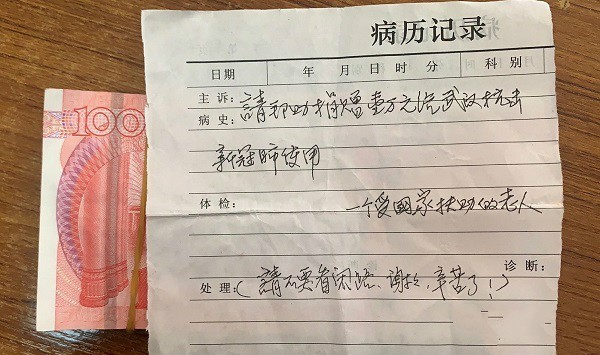 病历记录
日期 年 月 日 时 分 科 别
主诉: 請邦助捐贈壹万元给武汉抗击
病史:
新冠肺使用
体检: 一个受國家扶助的老人
诊断:
处理: (請不要看闭路、谢谢、辛苦了!)
100